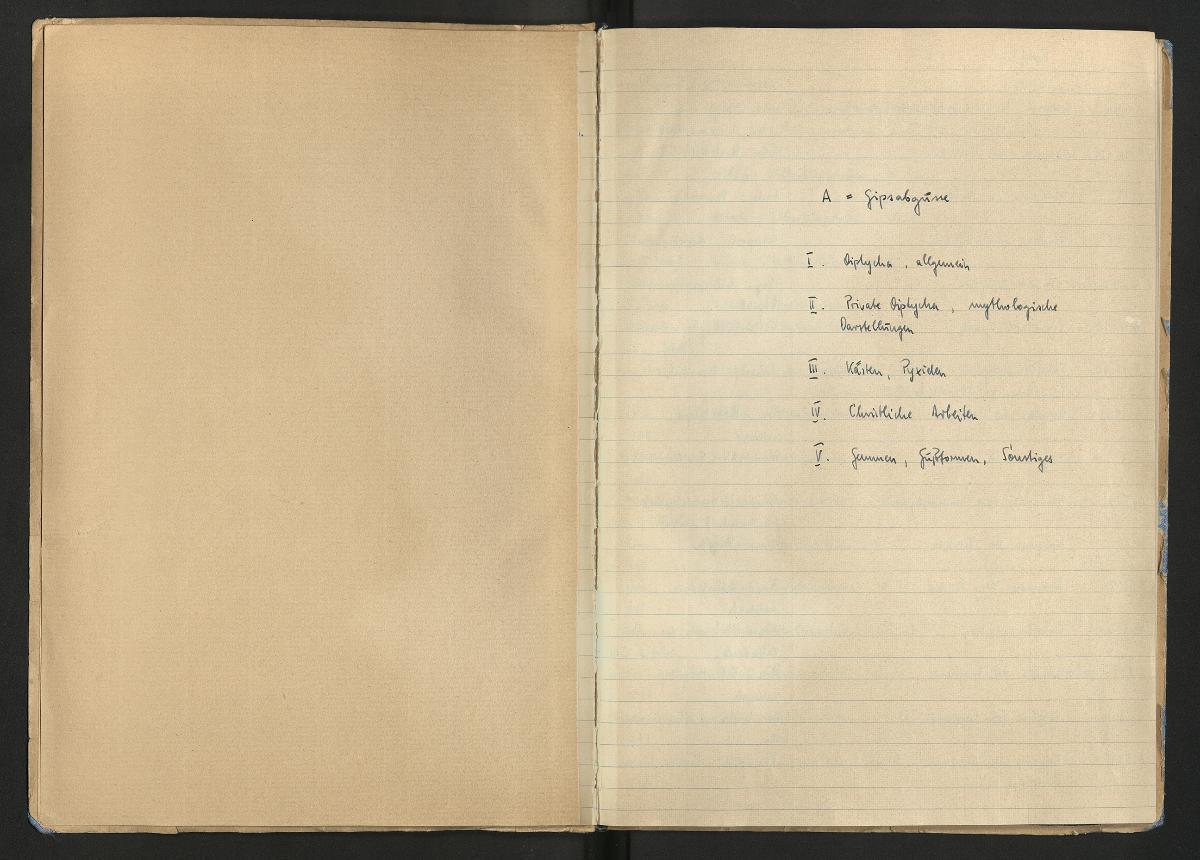 A = Gipsabgüsse
I. Diptycha, allgemein
II. Private Diptycha, mythologische
Darstellungen
III. Kästen, Pyxiden
IV. Christliche Arbeiten
V. Gemmen, Gußformen, Sonstiges